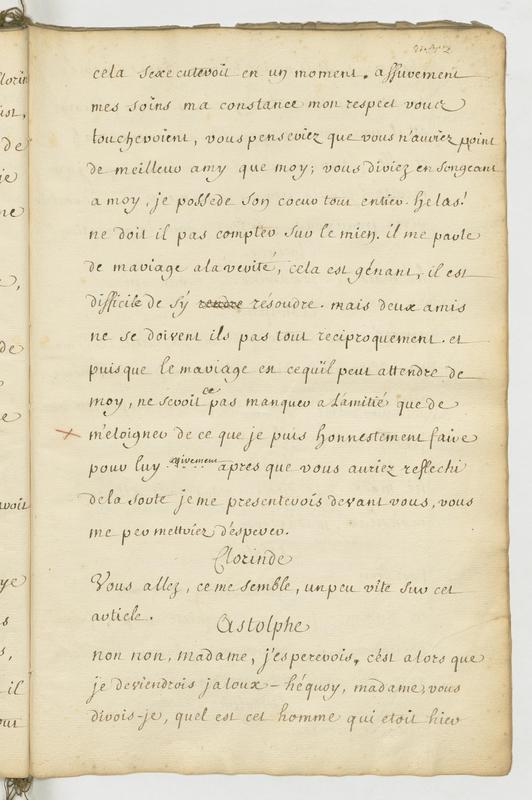 cela s'executeroit en un moment. assurement
mes soins ma constance mon respect vous
toucheroient, vous penseriez que vous n'auriez point
de meilleur amy que moy; vous diriez en songeant
a moy, je possede son coeur tout entier. helas!
ne doit il pas compter sur le mien. il me parle
de mariage a la verité, cela est génant, il est
difficile de s'ÿ rendre résoudre. mais deux amis
ne se doivent ils pas tout reciproquement. et
puisque le mariage est cequ'il peut attendre de
moy, ne seroit ce pas manquer a l'amitié que de
m'eloigner de ce que je puis honnestement faire
pour luy apres que vous auriez reflechi
de la sorte je me presenterois devant vous, vous
me permettriez d'esperer.
Clorinde
Vous allez, ce me semble, un peu vite sur cet
article.
Astolphe
non non, madame, j'espererois, c'est alors que
je deviendrois jaloux - hé quoy, madame, vous
dirois-je, quel est cet homme qui etoit hier